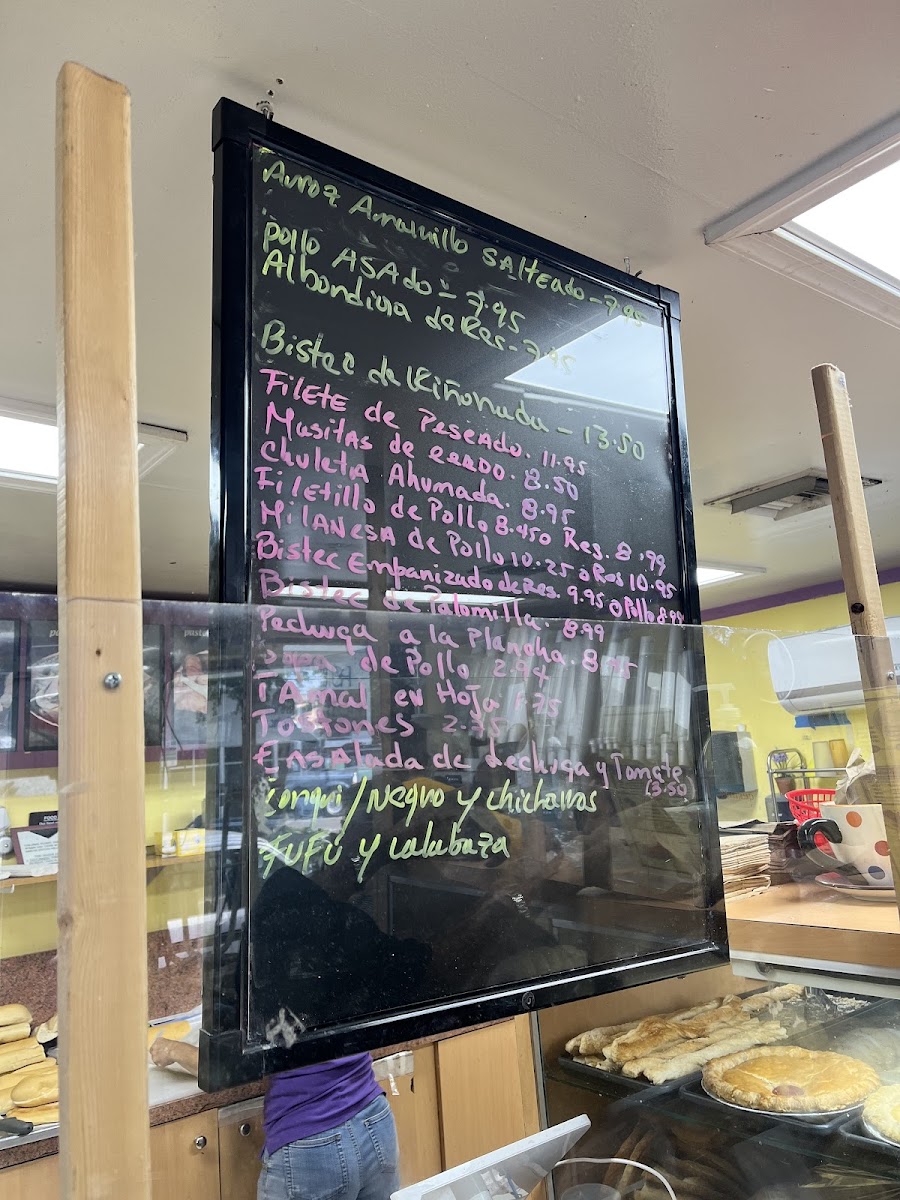 Arroz Amarillo SAlTEado - 7.95
Pollo ASAdo - 7.95
Albondiga de Res - 7.95
Bistec de Riñonada - 13.50
FilETE de PESCAdo. 11.95
MasitAS de CERDO. 8.50
ChuletA Ahumada. 8.95
FilEtillo de Pollo 8.450 Res. 8.99
MilANESA de Pollo 10.25 o Res 10.95
Bistec Empanizado de Res. 9.95 o Pollo 8.95
Bistec de Palomilla. 8.99
Pechuga a la Plancha. 8.75
Sopa de Pollo 2.94
TAmal en HOJA 1.75
Tostones 2.75
Ensalada de Lechuga y Tomate
13.50
Congri/Negro y chicharos
FUFÚ y calabaza